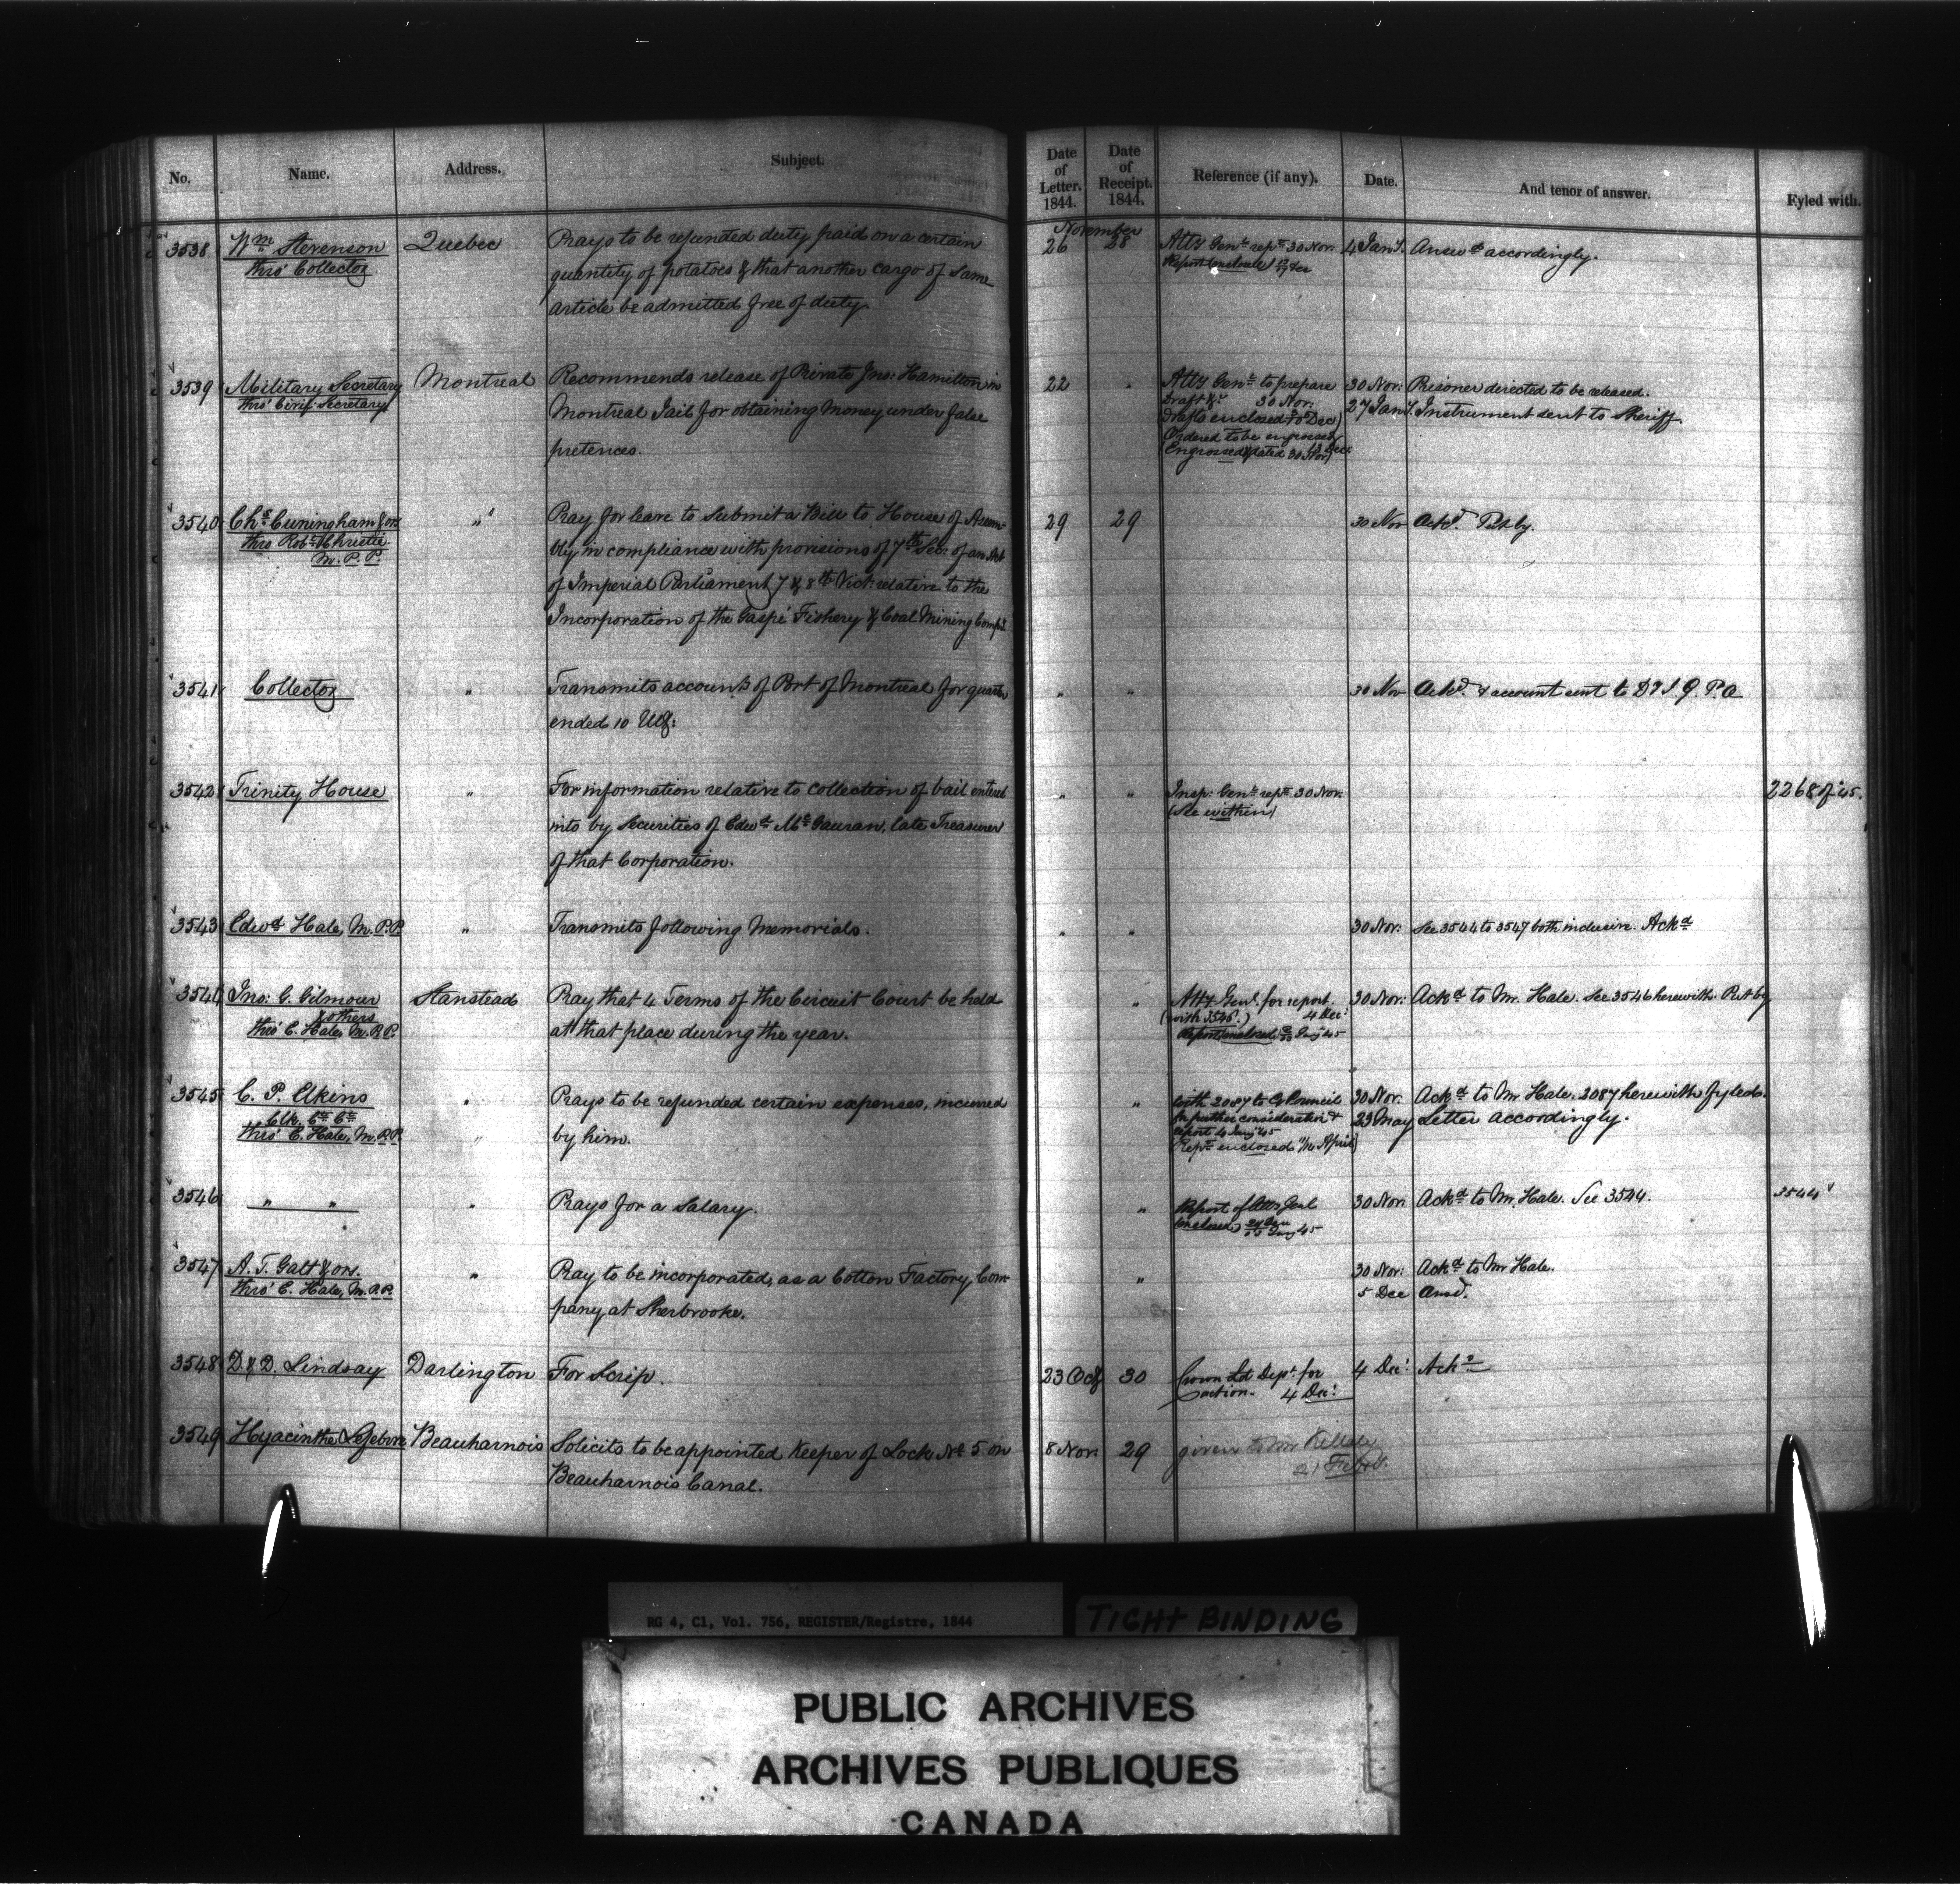 No. Name. Address. Subject. Date of Letter. 1844. Date of Receipt. 1844. Reference (if any). Date. And tenor of answer. Fyled with.
November
3538 Wm Stevenson Quebec Prays to be refunded duty paid on a certain 26 28 Atty Genl rept 30 Nov. 4 Jany. Answd accordingly.
thro' Collector quantity of potatoes & that another cargo of same Report enclosed
article be admitted free of duty.
3539 Military Secretary Montreal Recommends release of Private Jno: Hamilton in 22 " Atty Genl to prepare 30 Nov: Prisoner directed to be released.
thro' Civil Secretary Montreal Jail for obtaining Money under false Draft &c 30 Nov: 27 Jany. Instrument sent to Sheriff.
pretences. Drafts enclosed Dec)
Ordered to be engrossed
Engrossed (dated 30 Nov)
3540 Chs Cuningham & ors " Pray for leave to submit a Bill to House of Assem- 29 29 30 Nov Ackd. Put by.
thro Robt Christie bly in compliance with provisions of 7th Sec: of an Act
M.P.P. of Imperial Parliament 7 & 8th Vict: relative to the
Incorporation of the Gaspé Fishery & Coal Mining Compy
3541 Collector " Transmits accounts of Port of Montreal for quarter " " 30 Nov Ackd. & account sent to D I G. P. A
ended 10 Ult:
3542 Trinity House " For information relative to collection of bail entered " " Insp: Genl rept 30 Nov. 2268 of '45.
into by Securities of Edwd McGauran, late Treasurer (See within)
of that Corporation.
3543 Edwd Hale, M.P.P. " Transmits following Memorials. " " 30 Nov: See 3544 to 3547 both inclusive. Ackd
3544 Jno: G. Gilmour Stanstead Pray that 4 Terms of the Circuit Court be held " Atty Genl. for report. 30 Nov: Ackd to Mr. Hale. See 3546 herewith. Put by
& others at that place during the year. (with 3546.) 4 Dec:
thro' E. Hale, M.P.P. Report enclosed Jany 45
3545 C. P. Elkins " Prays to be refunded certain expenses, incurred " with 2087 to Ex Council 30 Nov. Ackd to Mr Hale. 2087 herewith fyled.
Clk. Ct. Ct. by him. for further consideration & 23 May Letter accordingly.
thro' E. Hale, M.P.P. report 4 Jany 45
Rept enclosed April)
3546 " " " Prays for a Salary. " Report of Atty Genl 30 Nov. Ackd to Mr. Hale. See 3544. 3544
enclosed) Jany 45
3547 A. T. Galt & ors. " Pray to be incorporated, as a Cotton Factory Com- " 30 Nov: Ackd to Mr Hale.
thro' E. Hale, M.P.P. pany at Sherbrooke. 5 Dec Answd.
3548 D. & D. Lindsay Darlington For Scrip. 23 Oct 30 Crown Ld Dept. for 4 Dec: Ackd
action. 4 Dec:
3549 Hyacinthe Lefebvre Beauharnois Solicits to be appointed Keeper of Lock No 5 on 8 Nov. 29 given to Mr Killaly
Beauharnois Canal. 21 Feby.
RG 4, C1, Vol. 756, REGISTER/Registre, 1844
TIGHT BINDING
PUBLIC ARCHIVES
ARCHIVES PUBLIQUES
CANADA